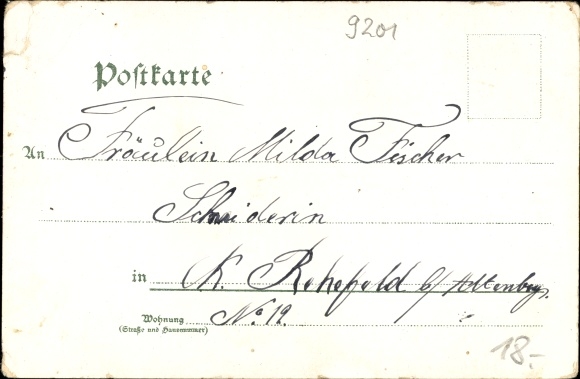 9201
Postkarte
An Fräulein Milda Fischer
Schneiderin
in K. Rehefeld b/ Altenberg.
Wohnung No 12.
(Straße und Hausnummer)
18.-